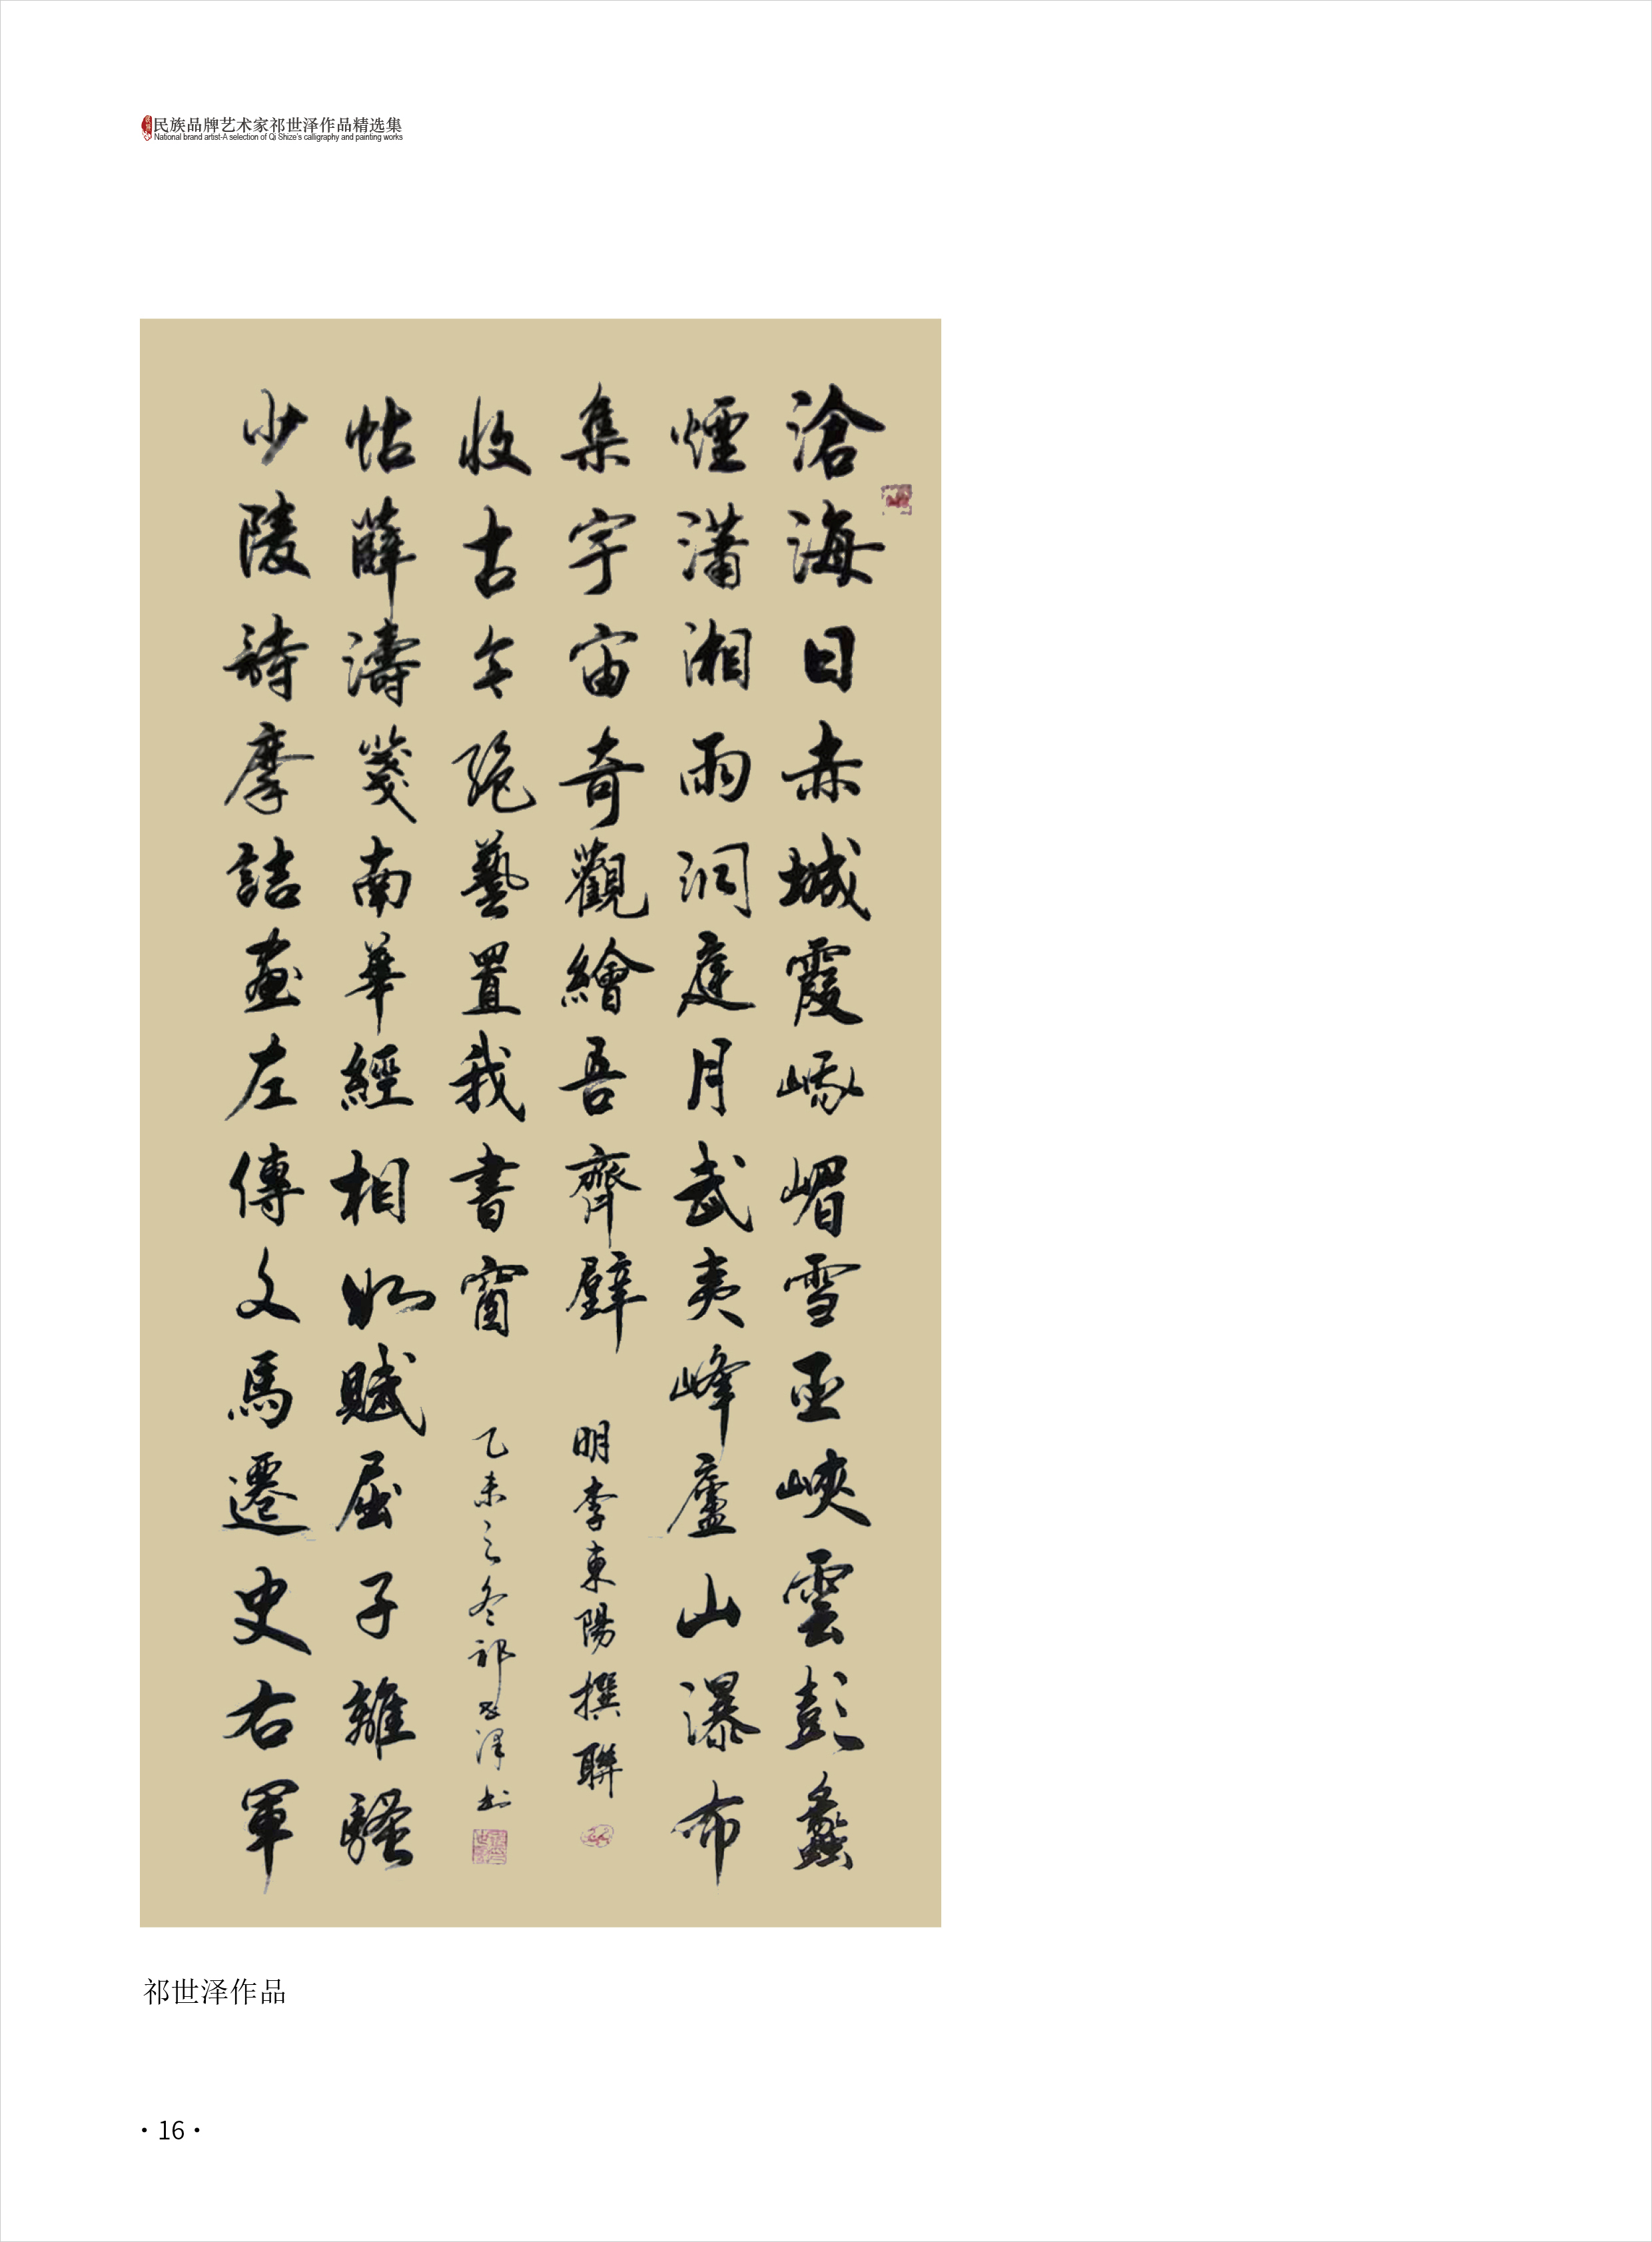 民族品牌艺术家祁世泽作品精选集
National brand artist-A selection of Qi Shize's calligraphy and painting works
滄海日赤城霞峨嵋雪巫峽雲彭蠡
煙瀟湘雨洞庭月武夷峰廬山瀑布
集宇宙奇觀繪吾齊壁
明李東陽撰聯
少陵詩摩詰畫左傳文馬遷史右軍
帖薛濤箋南華經相如賦屈子離騷
收古今絕藝置我書窗
乙未之冬祁世澤书
祁世泽作品
·16·